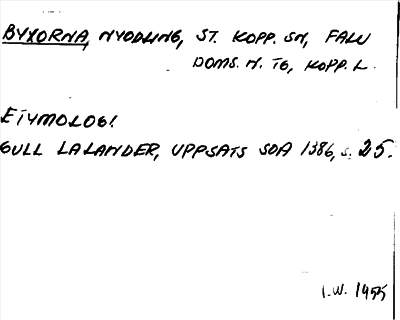 BYXORNA, NYODLING, ST. KOPP. SN, FALU
DOMS. N. TG, KOPP. L.
ETYMOLOGI
GULL LALANDER, UPPSATS SOA 1386, s. 25.
I.W. 1955